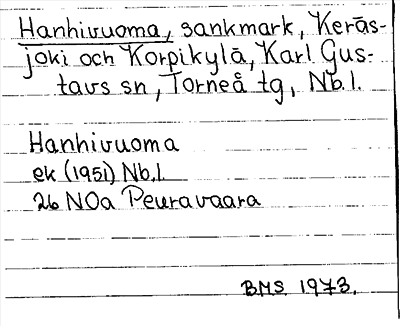 Hanhivuoma, sankmark, Keräs-
joki och Korpikylä, Karl Gus-
tavs sn, Torneå tg, Nb.l.
Hanhivuoma
ek (1951) Nb.l.
26 NOa Peuravaara
BMS 1973.